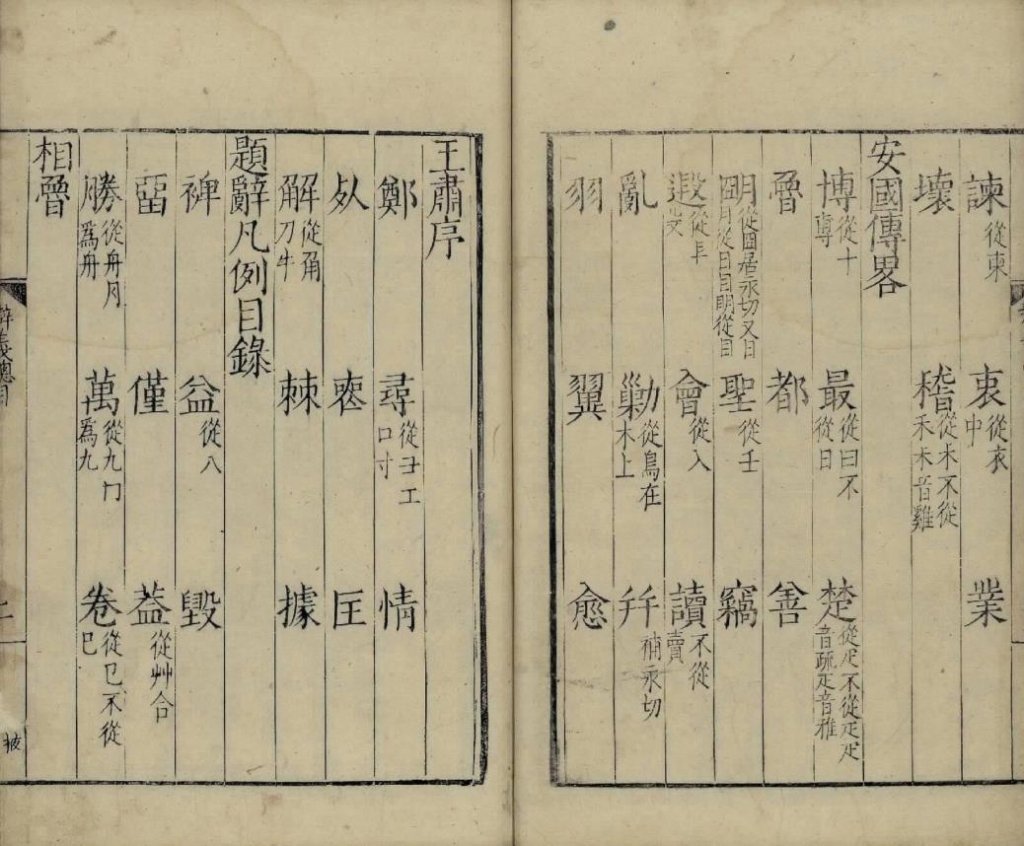 諫從柬 衷從衣中 業
壞 稽從禾不從禾禾音雞
安國傳畧
博從十尃 最從曰不從日 楚從疋不從疋疋音疏疋音雅
魯 都 善
明從囧居永切又日囧月從日目明從目 聖從壬 竊
遐從𠬝 會從入 讀不從賣
亂 勦從鳥在木上 幷補永切
羽 翼 愈
王肅序
鄭 尋從彐工口寸 情
从 愍 匡
解從角刀牛 棘 據
題辭凡例目錄
裨 益從八 毀
畱 僅 葢從艸合
勝從舟月爲舟 萬從九冂爲九 卷從㔾不從巳
相魯